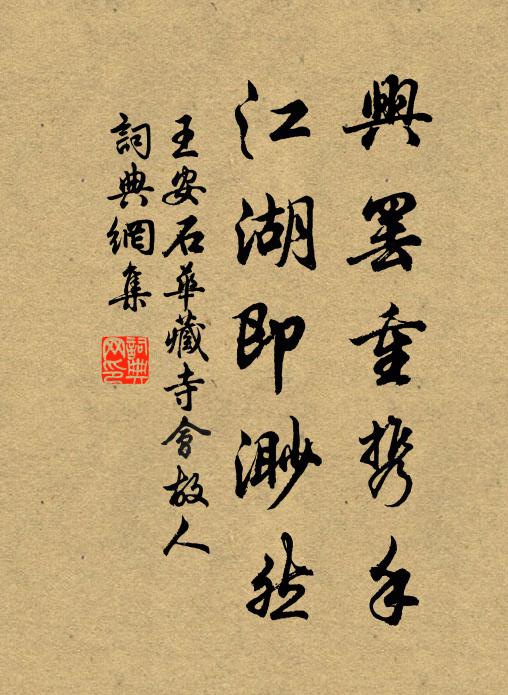 興罷重携手
江湖即渺然
王安石華藏寺會故人
詞典網集
詞典
网印